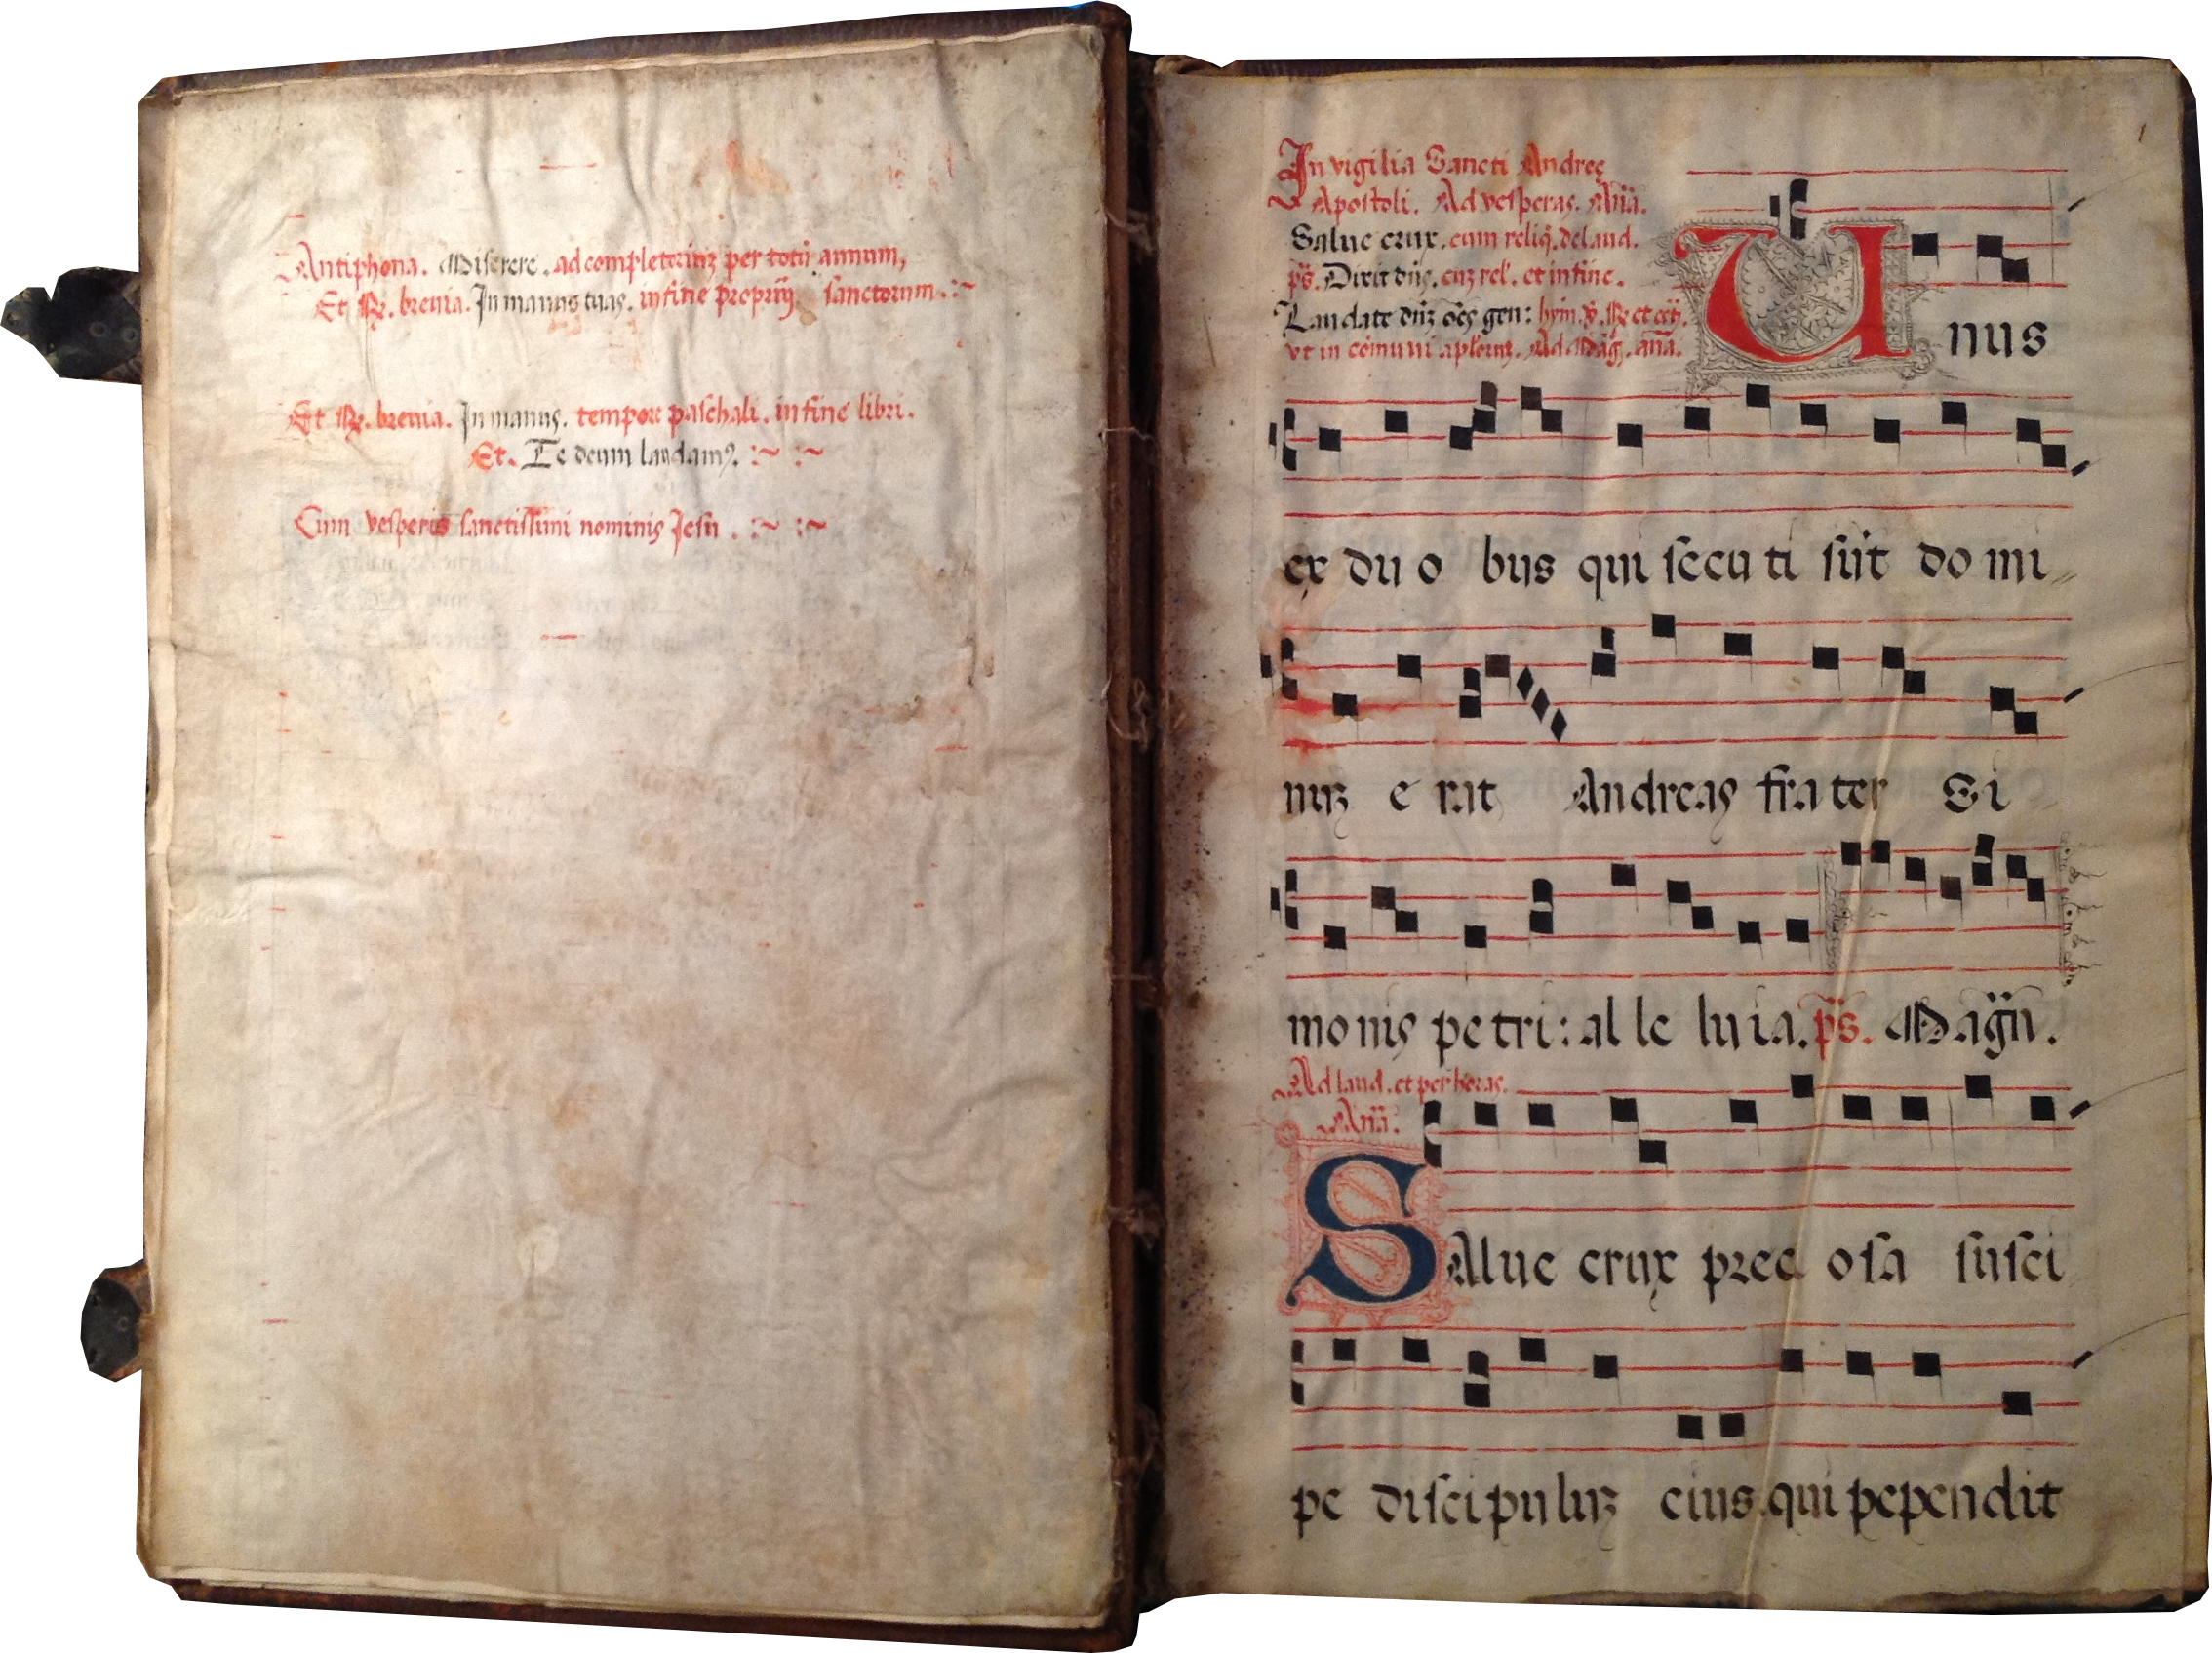 Antiphona. Miserere. ad completoriuz per totu annum,
Et R. breuia. In manus tuas. in fine proprij sanctorum. :~
Et R. breuia. In manus. tempore paschali. in fine libri.
Et. Te deum laudamꝰ. :~ :~
Cum vesperis sanctissimi nominis Jesu . :~ :~
1
In vigilia Sancti Andreę
Apostoli. Ad vesperas. Aña.
Salue crux. cum reliq̃. de laud.
ps̃. Dixit dñs. cuz rel'. et in fine.
Laudate dñz oẽs gen: hym. v̄. R et
vt in cõmuni aploruz. Ad Mag̃. añã.
Unus
ex du o bus qui secu ti sũt do mi
nuz e rat Andreas frater Si
mo nis pe tri: al le lu ia. ps̃. Mag̃ñ.
Ad laud. et per horas.
Aña.
Salue crux preci osa susci
pe discipuluz eius qui pependit